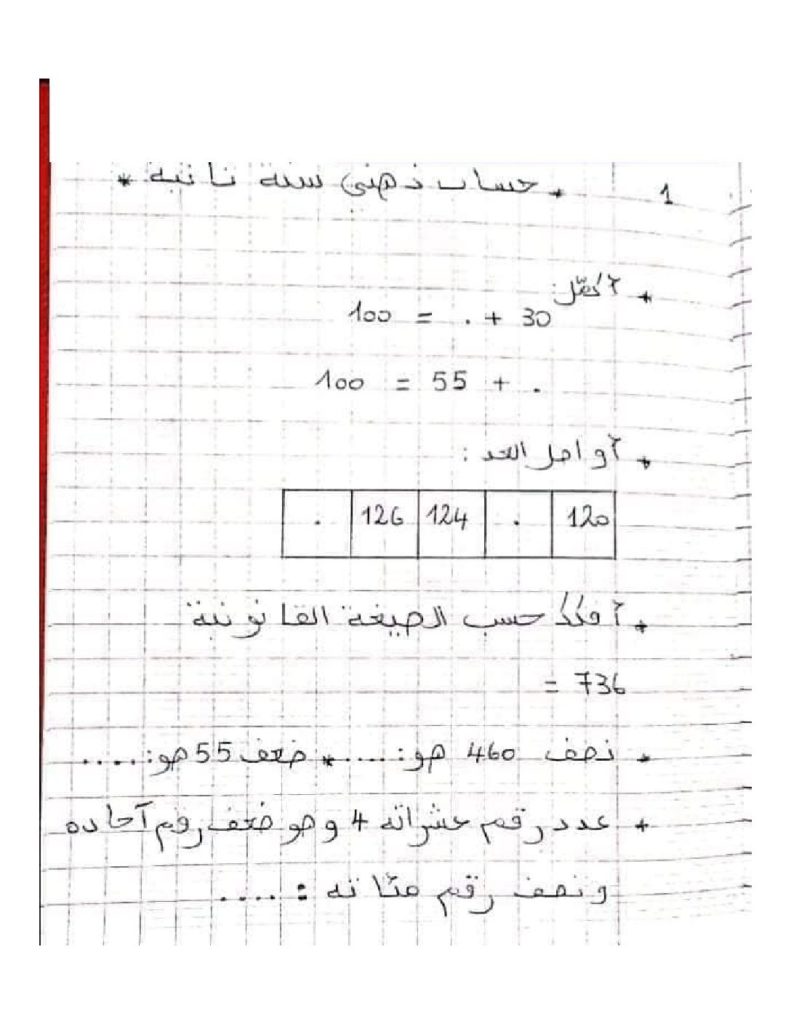 1 * حساب ذهني سنة ثانية *
* أكمّل:
30 + . = 100
. + 55 = 100
* أواصل العد :
120 . 124 126 .
* أفكك حسب الصيغة القانونية
736 =
* نصف 460 هو: ..... * ضعف 55 هو: .....
* عدد رقم عشراته 4 وهو ضعف رقم آحاده
ونصف رقم مئاته : .....